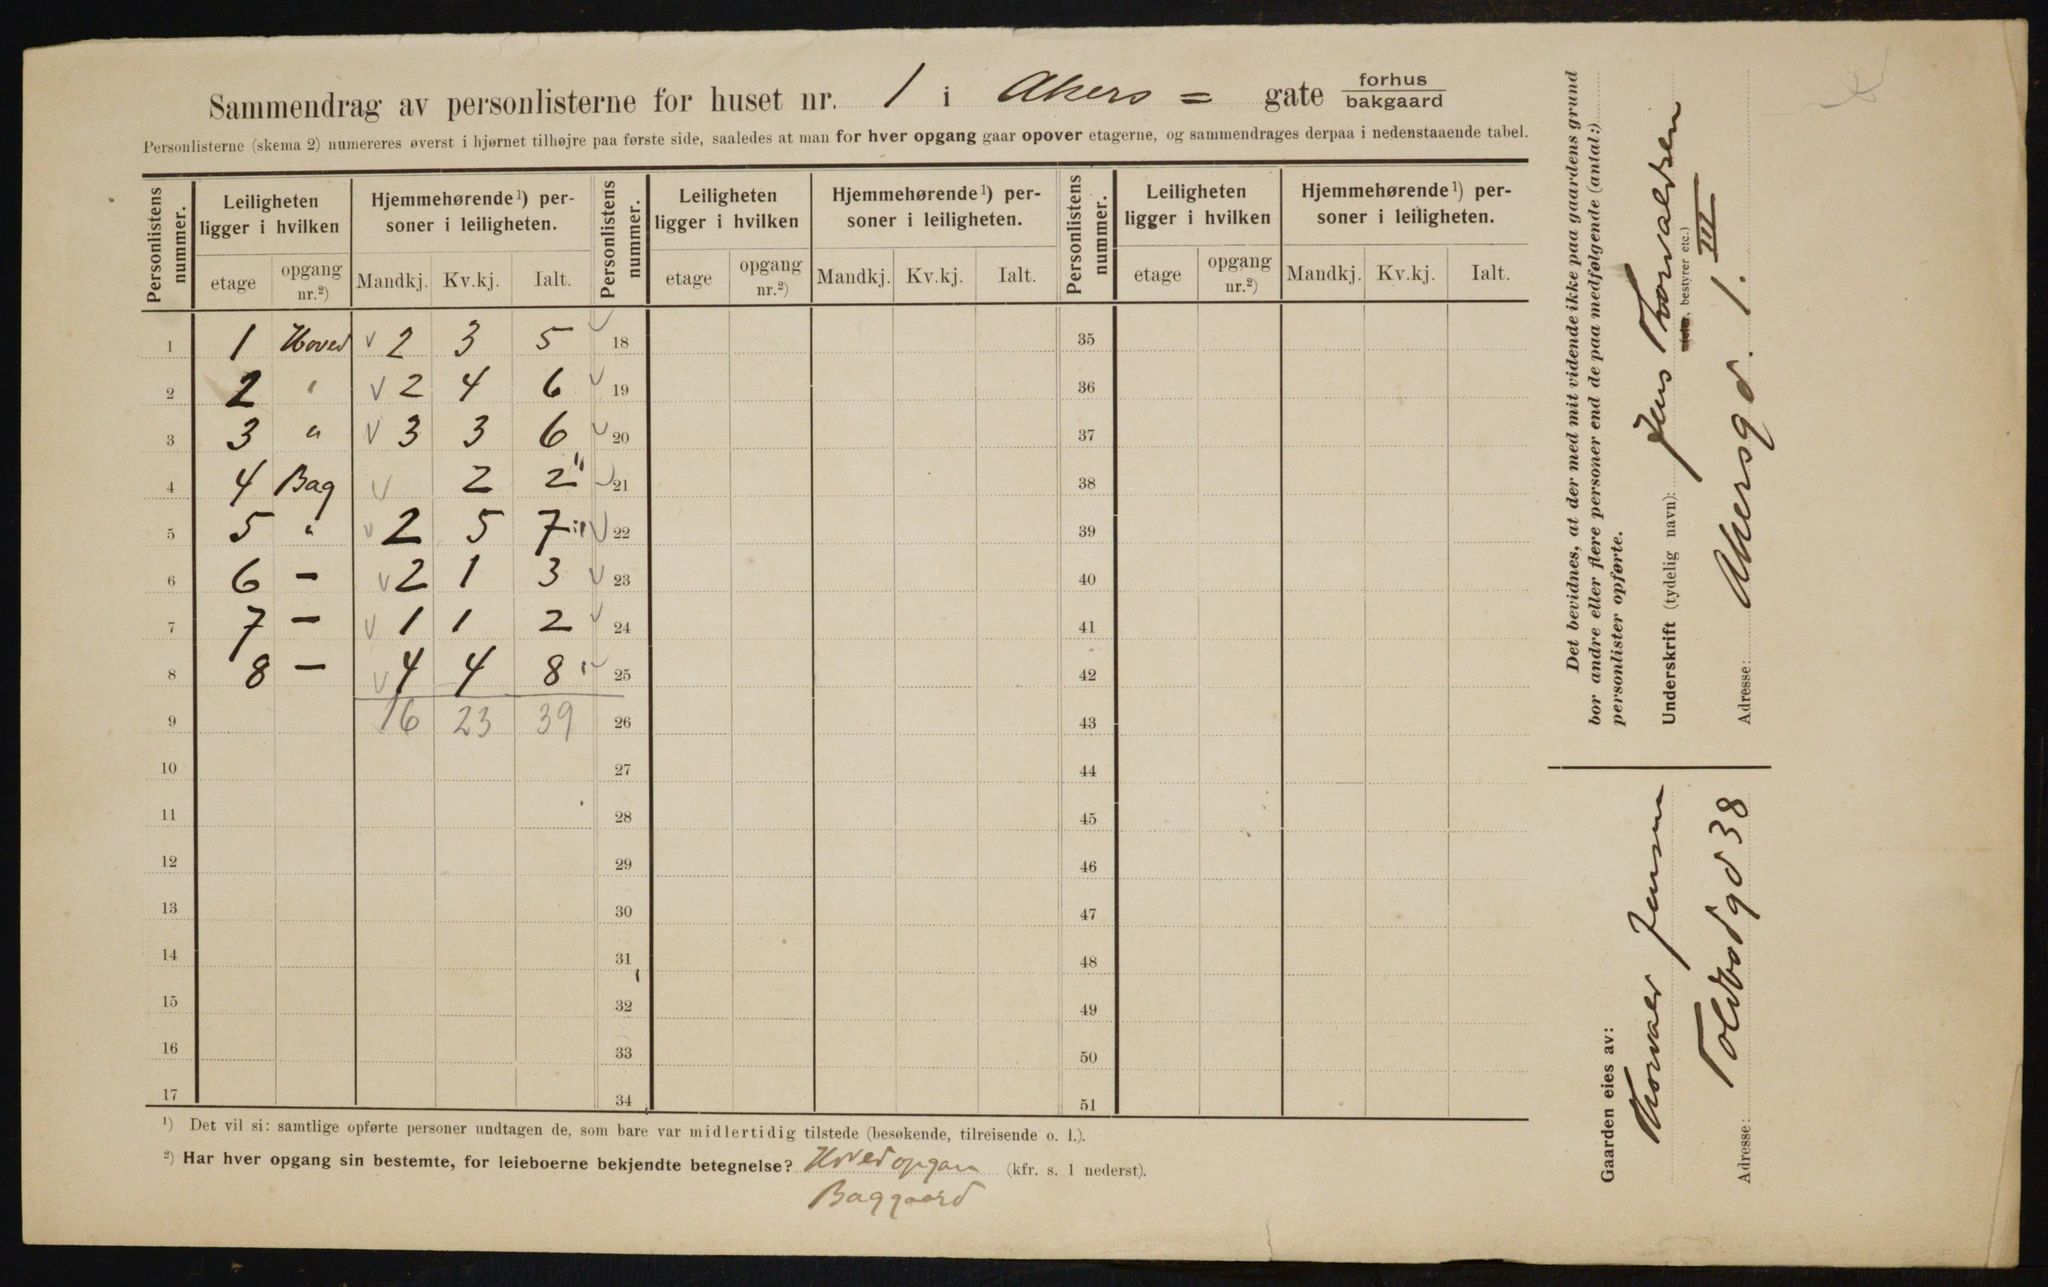 Sammendrag av personlisterne for huset nr. 1 i Akers = gate forhus
bakgaard
Personlisterne (skema 2) numereres øverst i hjørnet tilhøjre paa første side, saaledes at man for hver opgang gaar opover etagerne, og sammendrages derpaa i nedenstaaende tabel.
Personlistens nummer. Leiligheten ligger i hvilken Hjemmehørende¹) personer i leiligheten. Personlistens nummer. Leiligheten ligger i hvilken Hjemmehørende¹) personer i leiligheten. Personlistens nummer. Leiligheten ligger i hvilken Hjemmehørende¹) personer i leiligheten.
etage opgang nr.²) Mandkj. Kv.kj. Ialt. etage opgang nr.²) Mandkj. Kv.kj. Ialt. etage opgang nr.²) Mandkj. Kv.kj. Ialt.
1 1 Hoved v 2 3 5 v 18 35
2 2 " v 2 4 6 v 19 36
3 3 " v 3 3 6 v 20 37
4 4 Bag v 2 2 " v 21 38
5 5 " v 2 5 7 v 22 39
6 6 – v 2 1 3 v 23 40
7 7 – v 1 1 2 v 24 41
8 8 – v 4 4 8 v 25 42
9 16 23 39 26 43
10 27 44
11 28 45
12 29 46
13 30 47
14 31 48
15 32 49
16 33 50
17 34 51
¹) Det vil si: samtlige opførte personer undtagen de, som bare var midlertidig tilstede (besøkende, tilreisende o. l.).
²) Har hver opgang sin bestemte, for leieboerne bekjendte betegnelse? Hovedopgan (kfr. s. 1 nederst).
Baggaard
Det bevidnes, at der med mit vidende ikke paa gaardens grund
bor andre eller flere personer end de paa medfølgende (antal:)
personlister opførte.
Underskrift (tydelig navn): Jens Thorvaldsen
bestyrer etc.)
Adresse: Akersgd. 1. III
Gaarden eies av:
Thorvald Jensen
Adresse: Toldbodgd 38